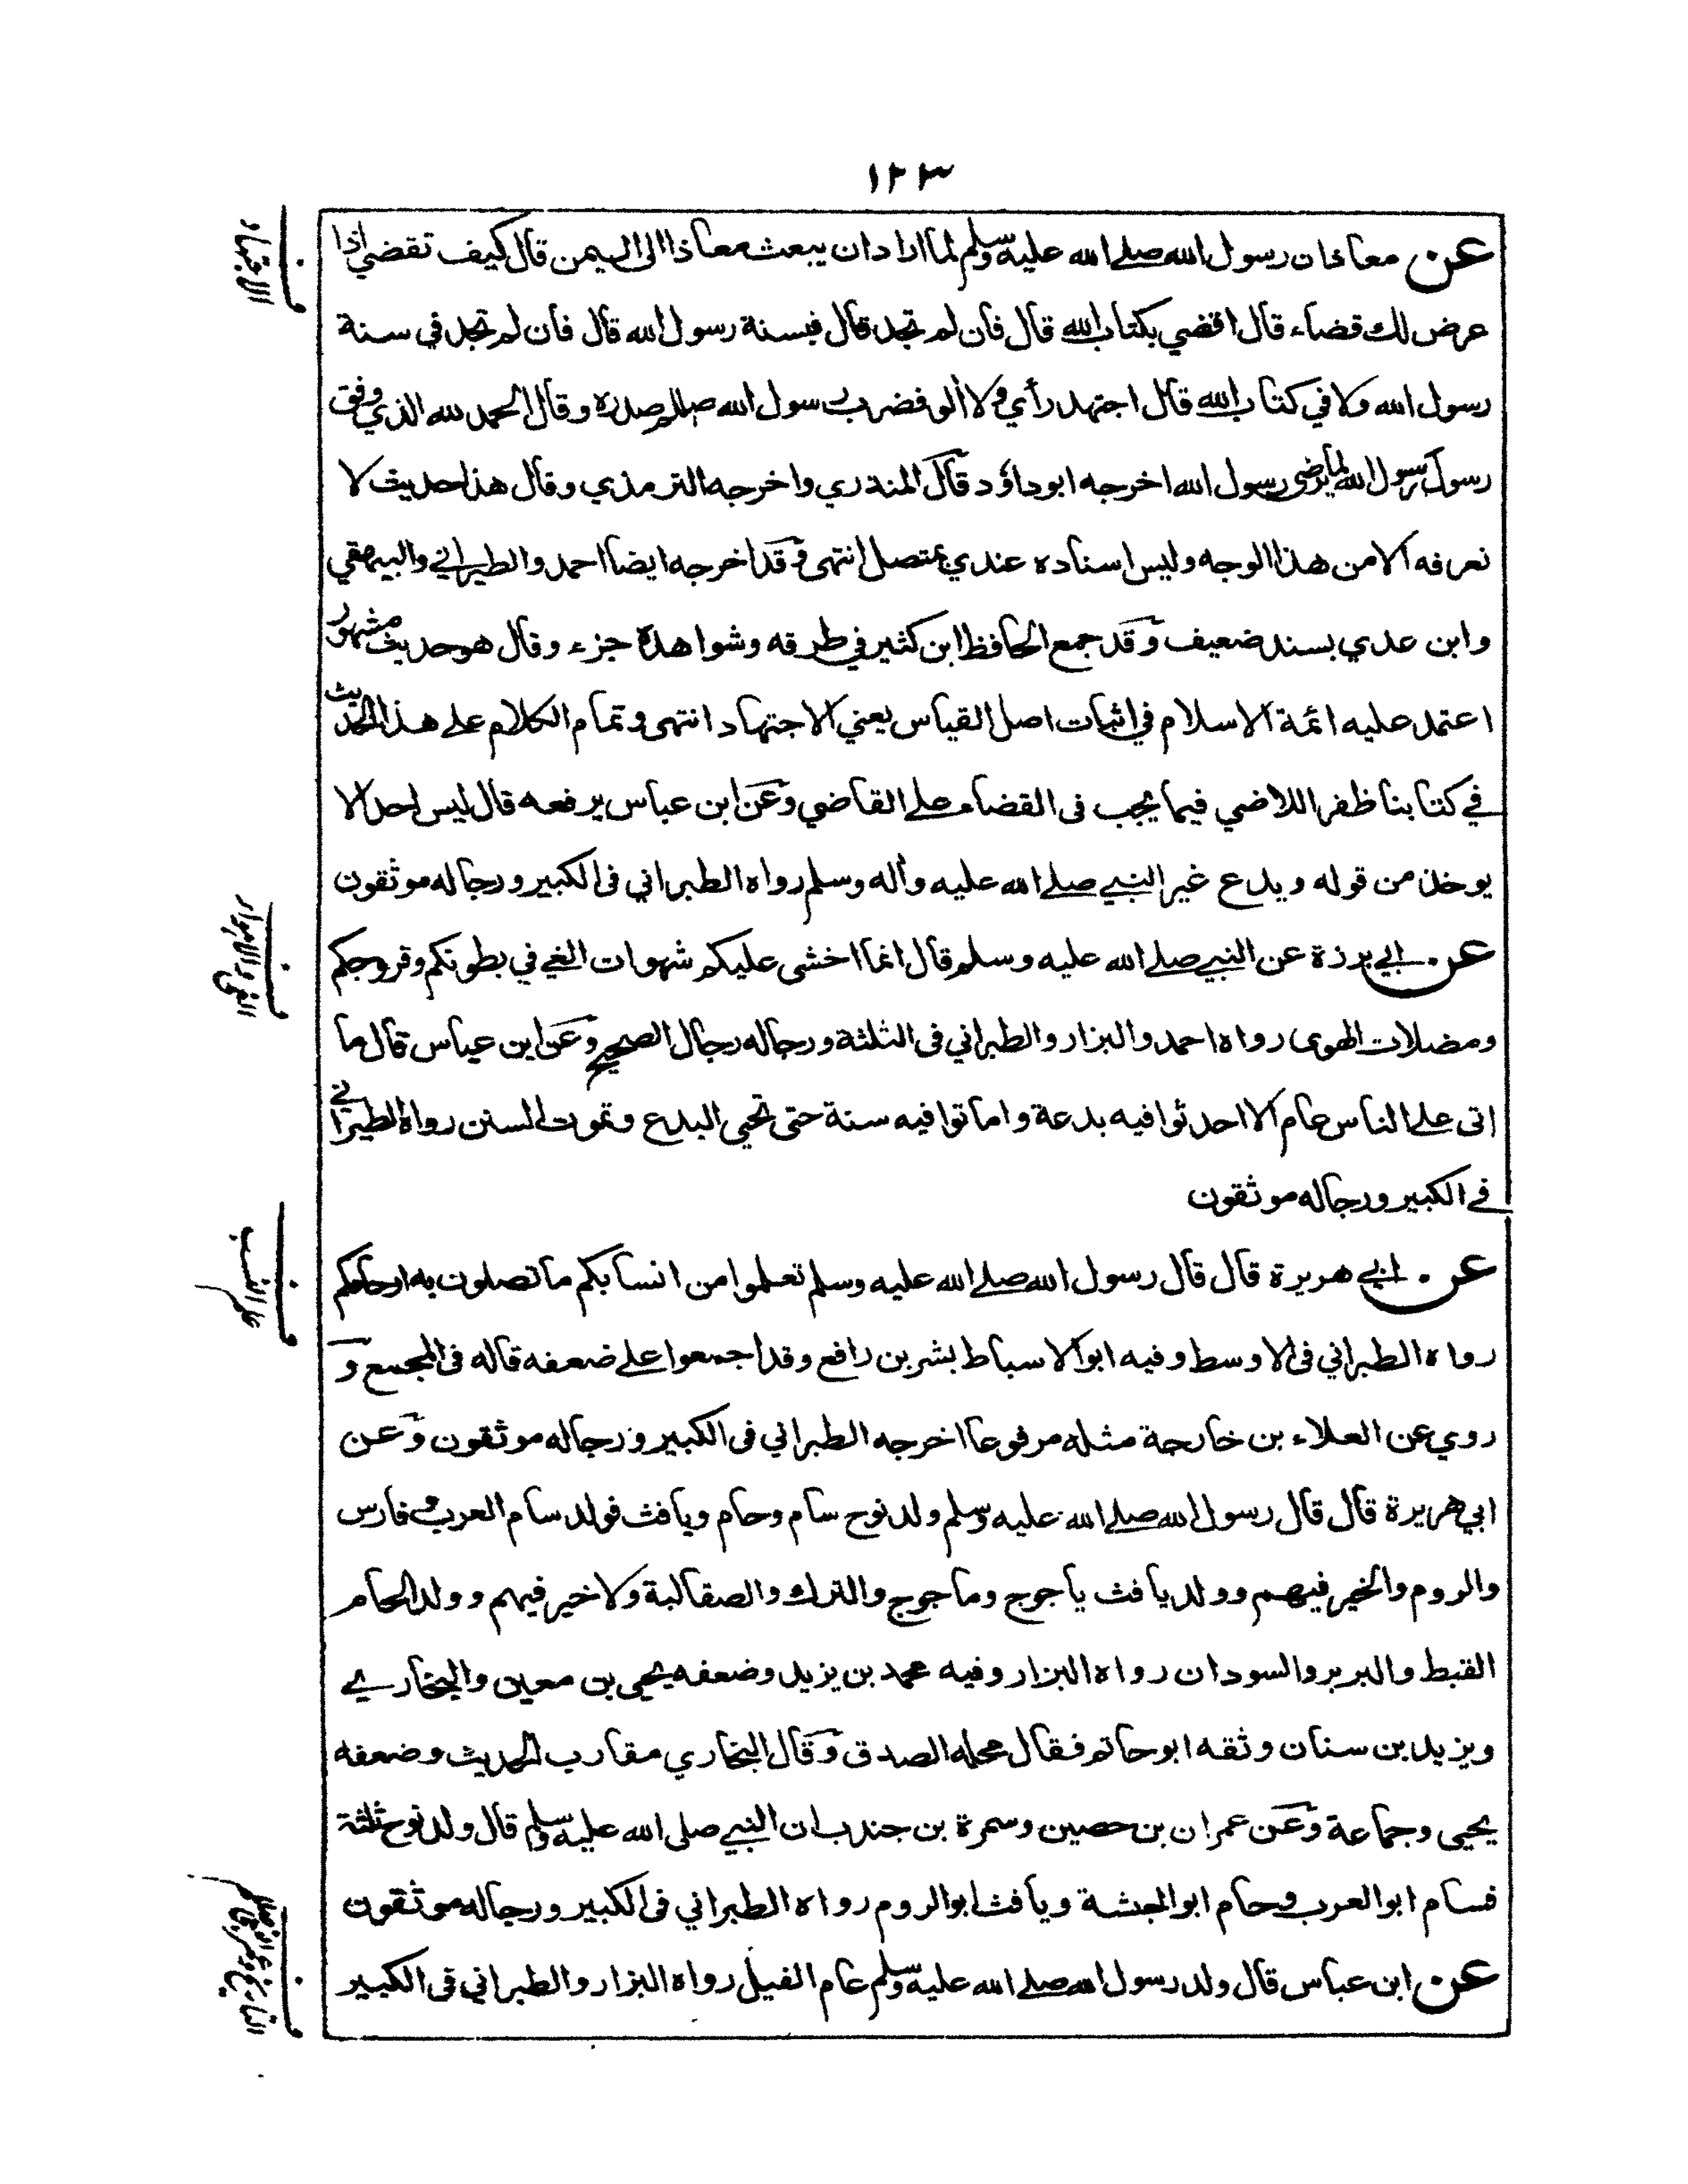 ١٢٣
عن معاذ ان رسول الله صلے الله عليه وسلم لما اراد ان يبعث معاذا الى اليمن قال كيف تقضي اذا
عرض لك قضاء قال اقضي بكتاب الله قال فان لم تجد قال فبسنة رسول الله قال فان لم تجد في سنة
رسول الله ولا في كتاب الله قال اجتهد رأي ولا ألو فضرب رسول الله صللم صدره وقال الحمد لله الذي وفق
رسول رسول الله لما يرضى رسول الله اخرجه ابو داؤد قال المنذري واخرجه الترمذي وقال هذا حديث لا
نعرفه الا من هذا الوجه وليس اسناده عندي بمتصل انتهى وقد اخرجه ايضا احمد والطبراني والبيهقي
وابن عدي بسند ضعيف وقد جمع الحافظ ابن كثير في طرقه وشواهده جزء وقال هو حديث مشهور
اعتمد عليه ائمة الاسلام في اثبات اصل القياس يعني الاجتهاد انتهى وتمام الكلام على هذا الحديث
في كتابنا ظفر اللاضي فيما يجب فى القضاء على القاضي وعن ابن عباس يرفعه قال ليس احد الا
يوخذ من قوله ويدع غير النبي صلے الله عليه وأله وسلم رواه الطبراني فى الكبير ورجاله موثقون
عن ابي برزة عن النبي صلے الله عليه وسلم قال انما اخشى عليكم شهوات الغي في بطونكم وفروجكم
ومضلات الهوى رواه احمد والبزار والطبراني فى الثلثة ورجاله رجال الصحيح وعن ابن عباس قال ما
اتى على الناس عام الا احدثوا فيه بدعة واماتوا فيه سنة حتى تحيى البدع وتموت السنن رواه الطبراني
في الكبير ورجاله موثقون
عن ابي هريرة قال قال رسول الله صلے الله عليه وسلم تعلموا من انسابكم ما تصلون به ارحامكم
رواه الطبراني فى الاوسط وفيه ابو الاسباط بشر بن رافع وقد اجمعوا على ضعفه قاله فى المجمع و
روي عن العلاء بن خارجة مثله مرفوعا اخرجه الطبراني فى الكبير ورجاله موثقون وعن
ابي هريرة قال قال رسول الله صلے الله عليه وسلم ولد نوح سام وحام ويافث فولد سام العرب وفارس
والروم والخير فيهم وولد يافث ياجوج وماجوج والترك والصقالبة ولا خير فيهم وولد الحام
القبط والبربر والسودان رواه البزار وفيه محمد بن يزيد وضعفه يحيى بن معين والبخاري
ويزيد بن سنان وثقه ابو حاتم فقال محله الصدق وقال البخاري مقارب الحديث وضعفه
يحيى وجماعة وعن عمران بن حصين وسمرة بن جندب ان النبي صلى الله عليه وسلم قال ولد نوح ثلثة
فسام ابو العرب وحام ابو الحبشة ويافث ابو الروم رواه الطبراني فى الكبير ورجاله موثقون
عن ابن عباس قال ولد رسول الله صلے الله عليه وسلم عام الفيل رواه البزار والطبراني فى الكبير
ف الاجتهاد
ف الغي والاهواء
ف علم النسب